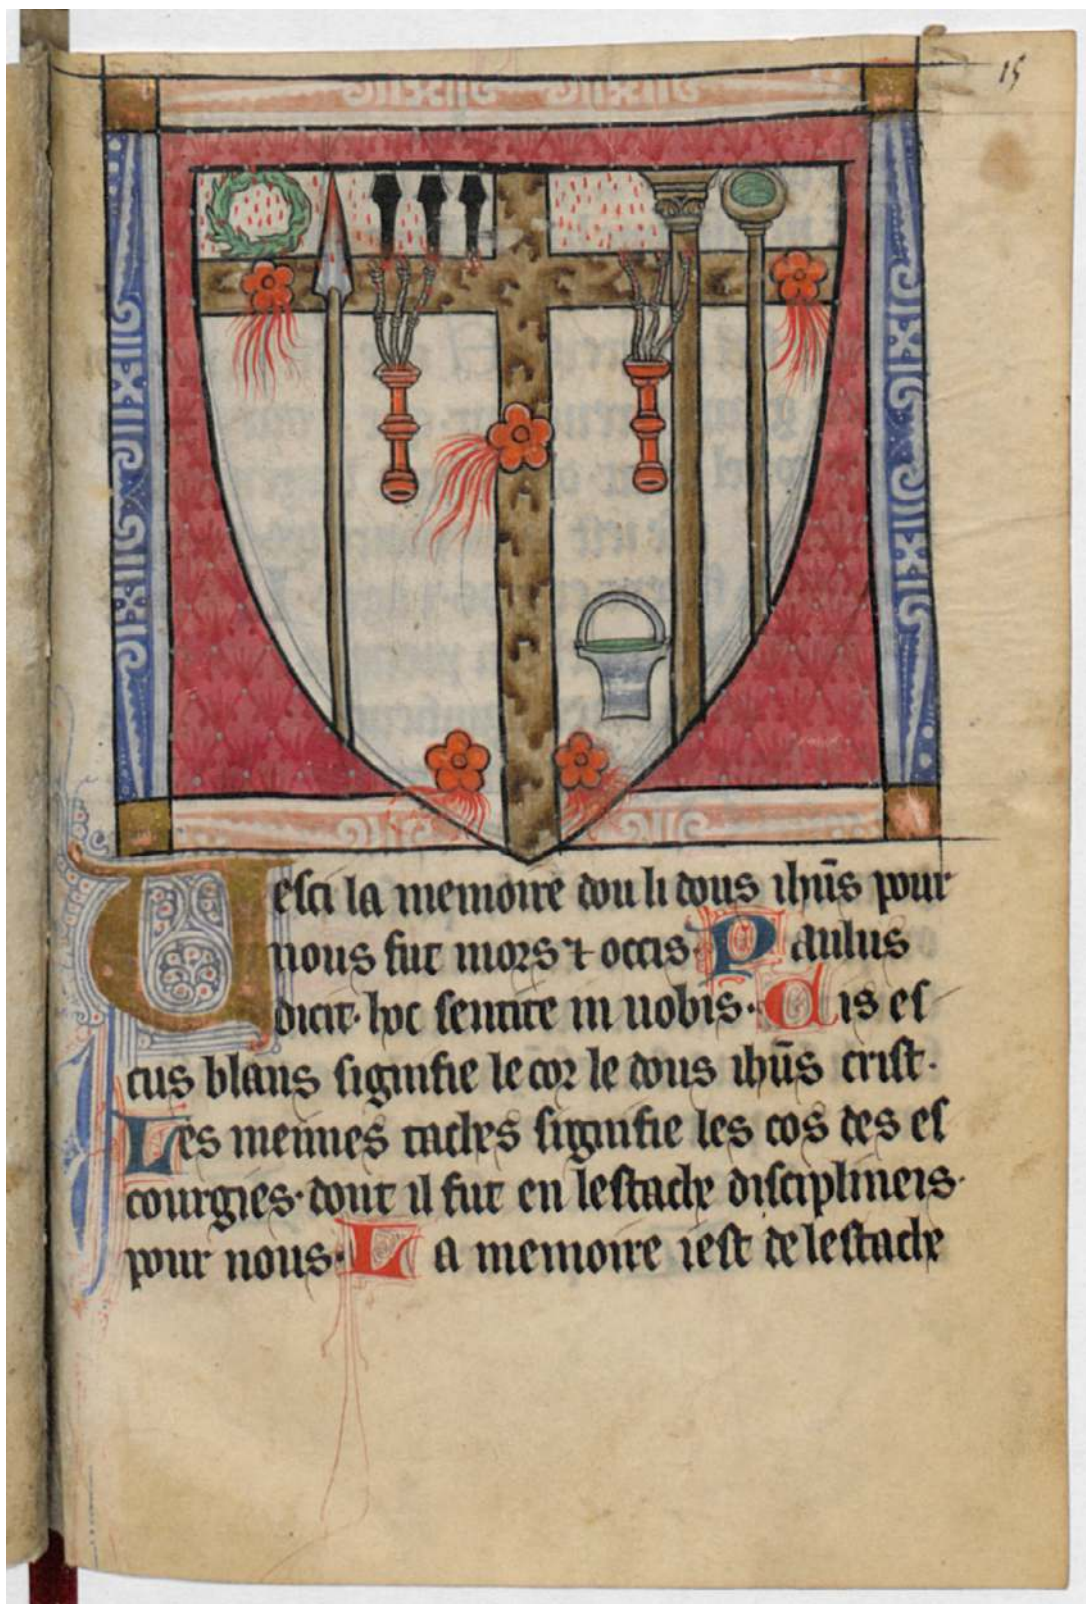 15
Vesci la memoire dou li dous ihūs pour
nous fut mors ⁊ occis. Paulus
dicit. hoc sentite in uobis. Cis es
cus blans signifie le cor le dous ihūs crist.
Les mennes taches signifie les cos des es
courgies. dont il fut en lestache disciplineis.
pour nous. La memoire iest de lestache